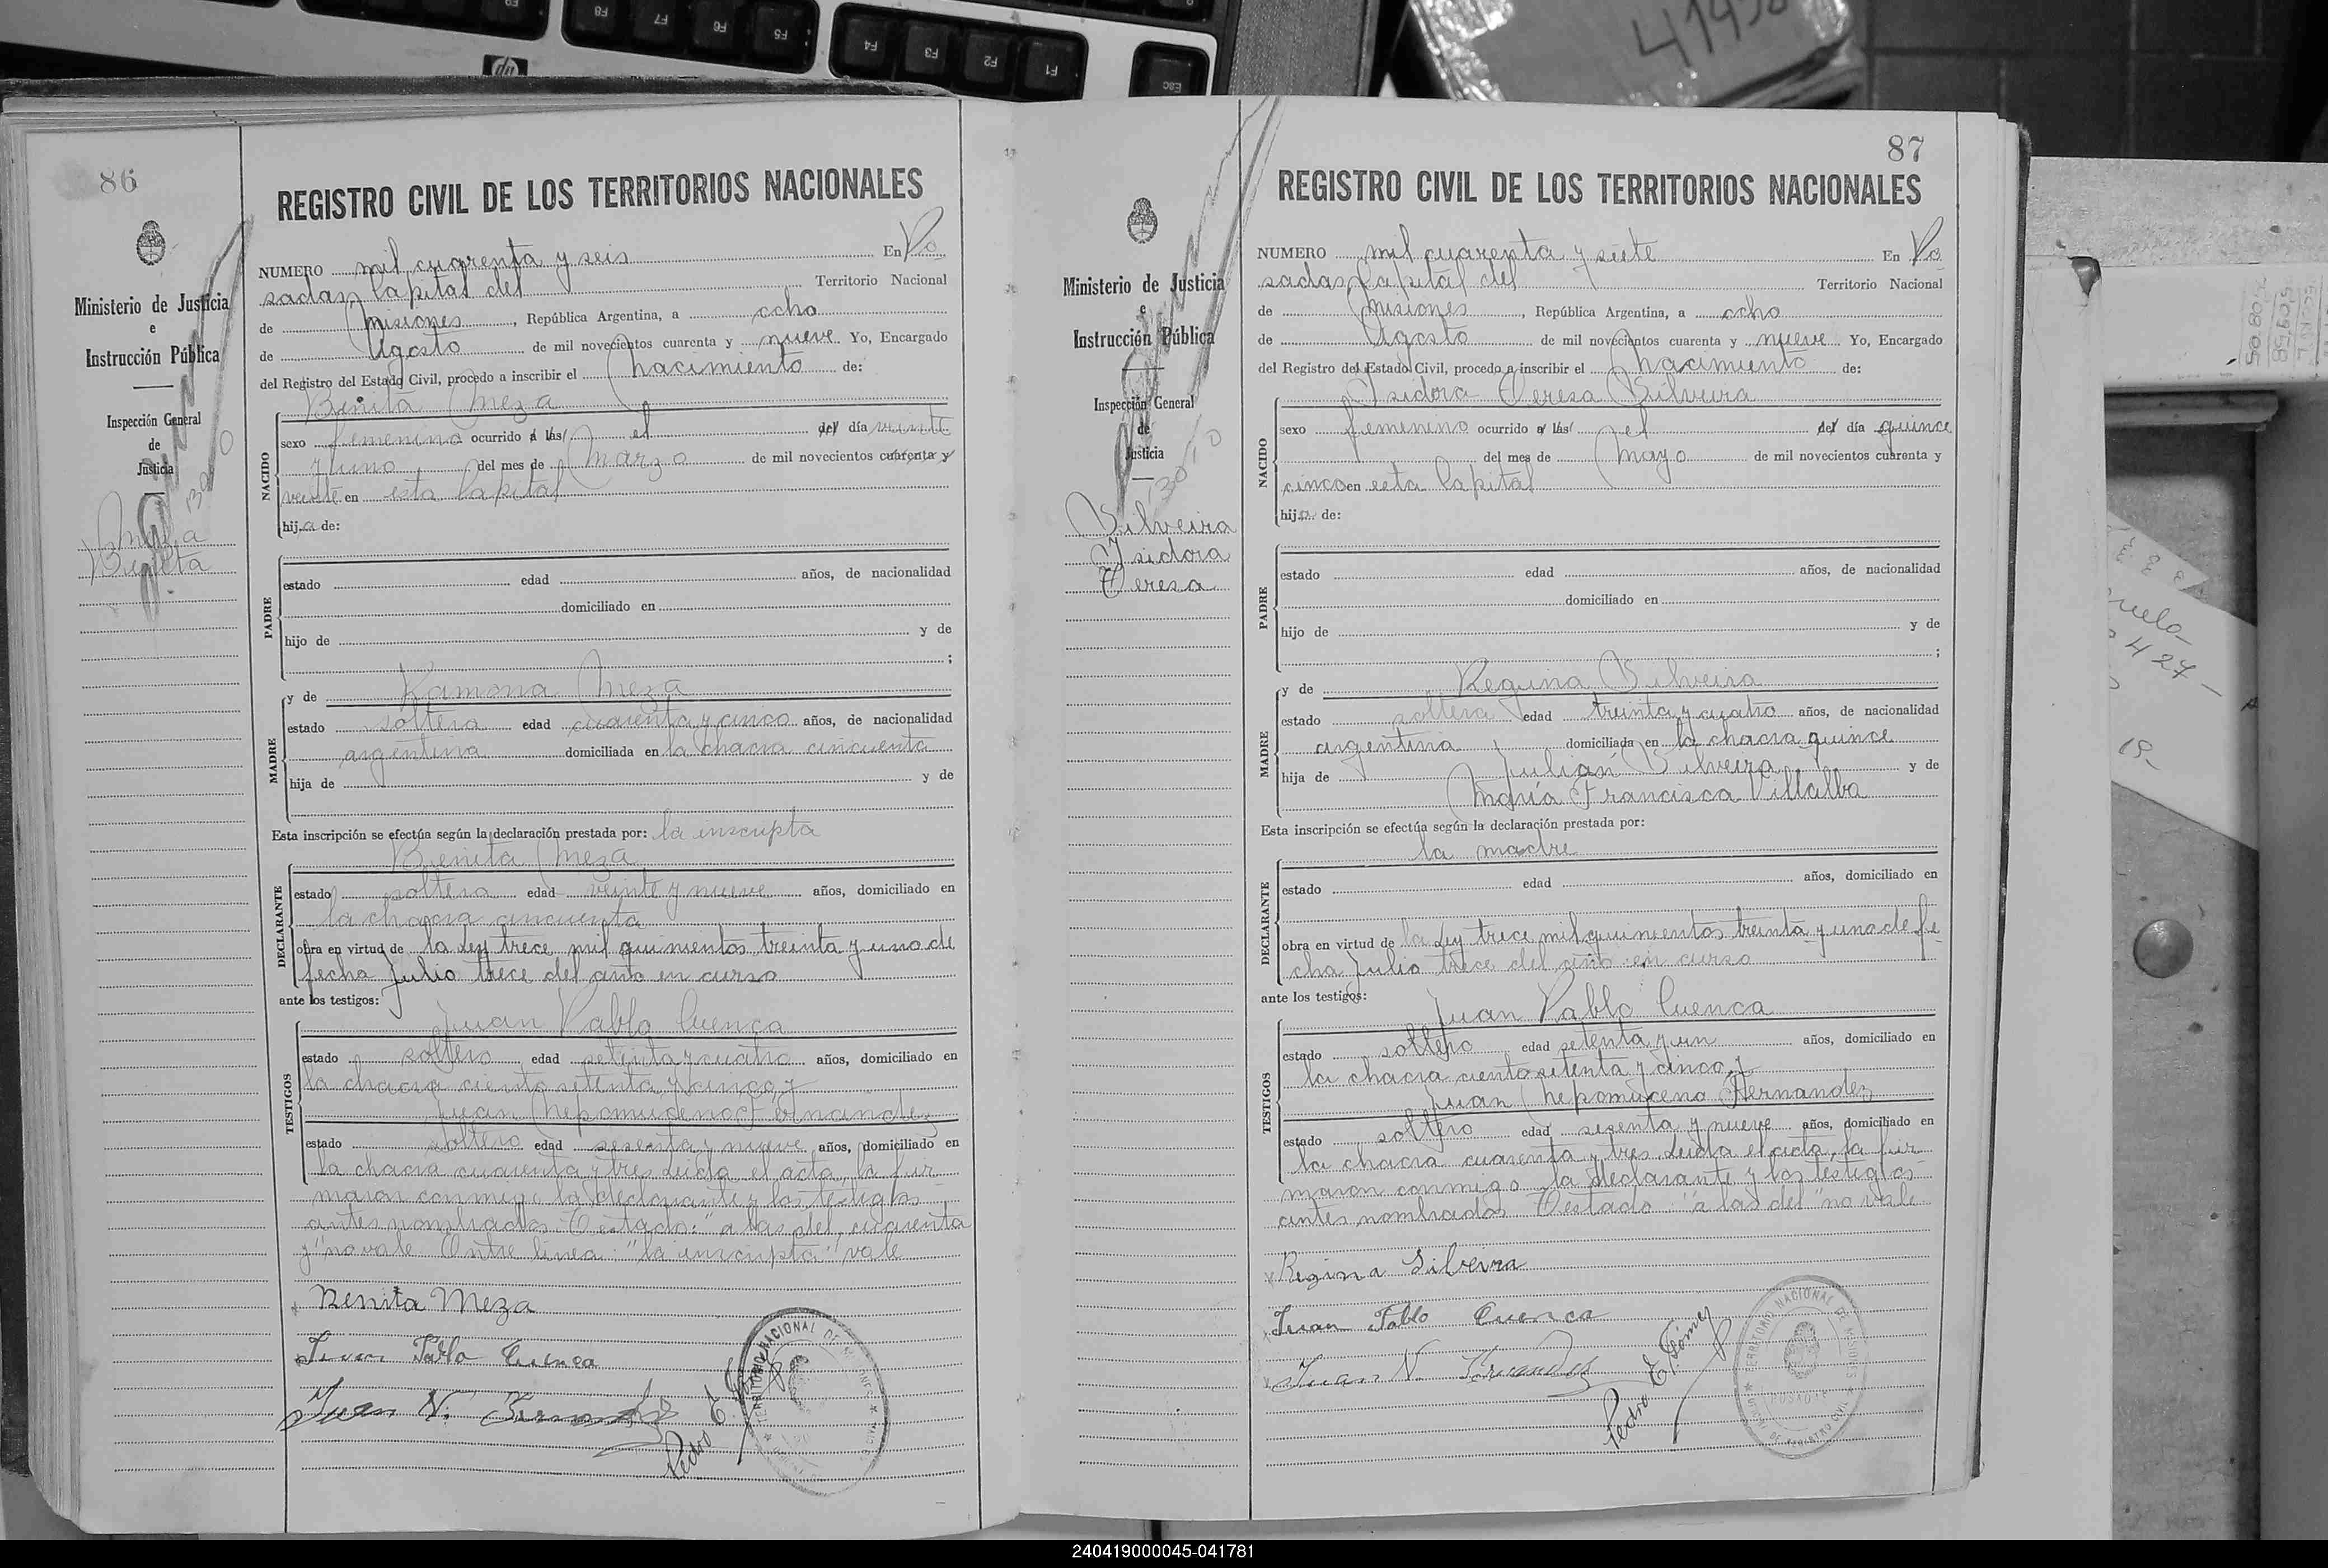 86
Ministerio de Justicia
e
Instrucción Pública
Inspección General
de
Justicia
Meza
Benita
REGISTRO CIVIL DE LOS TERRITORIOS NACIONALES
NUMERO mil cuarenta y seis En Po
sadas Capital del Territorio Nacional
de Misiones, República Argentina, a ocho
de Agosto de mil novecientos cuarenta y nueve Yo, Encargado
del Registro del Estado Civil, procedo a inscribir el nacimiento de:
Benita Meza
NACIDO
sexo femenino ocurrido a las el del día veinte
y uno del mes de Marzo de mil novecientos cuarenta y
veinte en esta Capital
hija de:
PADRE
estado edad años, de nacionalidad
domiciliado en
hijo de y de
;
MADRE
y de Ramona Meza
estado soltera edad cuarenta y cinco años, de nacionalidad
argentina domiciliada en la chacra cincuenta
hija de y de
Esta inscripción se efectúa según la declaración prestada por: la inscripta
DECLARANTE
Benita Meza
estado soltera edad veinte y nueve años, domiciliado en
la chacra cincuenta
obra en virtud de la Ley trece mil quinientos treinta y uno de
fecha Julio trece del año en curso
ante los testigos:
TESTIGOS
Juan Pablo Cuenca
estado soltero edad setenta y cuatro años, domiciliado en
la chacra ciento setenta y cinco y
Juan Nepomuceno Fernandez
estado soltero edad sesenta y nueve años, domiciliado en
la chacra cuarenta y tres Leida el acta, la fir
maron conmigo la declarante y los testigos
antes nombrados Testado: "a las del, cuarenta
y" no vale Entre linea: "la inscripta" vale
Benita Meza
Juan Pablo Cuenca
Juan N. Fernandez
Pedro E. Gómez
TERRITORIO NACIONAL DE MISIONES
87
Ministerio de Justicia
e
Instrucción Pública
Inspección General
de
Justicia
Silveira
Isidora
Teresa
REGISTRO CIVIL DE LOS TERRITORIOS NACIONALES
NUMERO mil cuarenta y siete En Po
sadas Capital del Territorio Nacional
de Misiones, República Argentina, a ocho
de Agosto de mil novecientos cuarenta y nueve Yo, Encargado
del Registro del Estado Civil, procedo a inscribir el nacimiento de:
Isidora Teresa Silveira
NACIDO
sexo femenino ocurrido a las el del día quince
del mes de Mayo de mil novecientos cuarenta y
cinco en esta Capital
hija de:
PADRE
estado edad años, de nacionalidad
domiciliado en
hijo de y de
;
MADRE
y de Regina Silveira
estado soltera edad treinta y cuatro años, de nacionalidad
argentina domiciliada en la chacra quince
hija de Julián Silveira y de
María Francisca Villalba
Esta inscripción se efectúa según la declaración prestada por:
DECLARANTE
la madre
estado edad años, domiciliado en
obra en virtud de la Ley trece mil quinientos treinta y uno de fe
cha Julio trece del año en curso
ante los testigos:
TESTIGOS
Juan Pablo Cuenca
estado soltero edad setenta y un años, domiciliado en
la chacra ciento setenta y cinco, y
Juan Nepomuceno Hernandez
estado soltero edad sesenta y nueve años, domiciliado en
la chacra cuarenta y tres Leida el acta, la fir
maron conmigo la declarante y los testigos
antes nombrados Testado: "a las del" no vale
Regina Silveira
Juan Pablo Cuenca
Pedro E. Gómez
TERRITORIO NACIONAL DE MISIONES
POSADAS
240419000045-041781